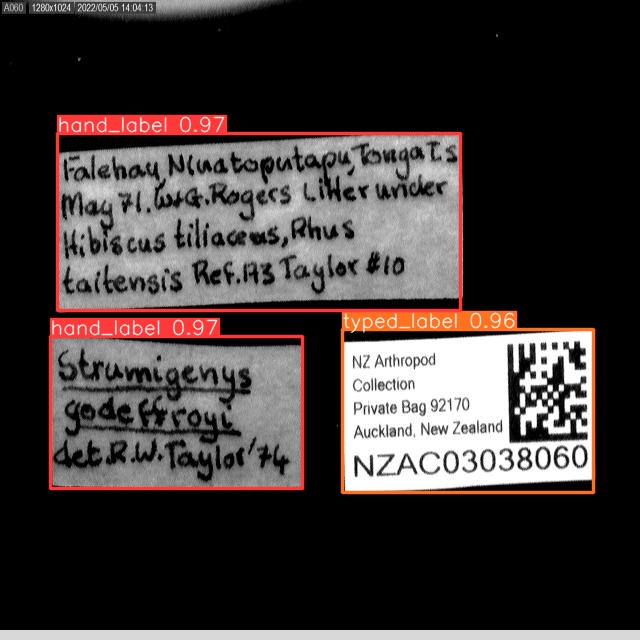 A060 1280x1024 2022/05/05 14:04:13
hand_label 0.97
Falehau, Niuatoputapu, Tonga Is
May 71. W+G. Rogers Litter under
Hibiscus tiliaceus, Rhus
taitensis Ref. A3 Taylor #10
hand_label 0.97
Strumigenys
godeffroyi
det. R.W. Taylor '74
typed_label 0.96
NZ Arthropod
Collection
Private Bag 92170
Auckland, New Zealand
NZAC03038060